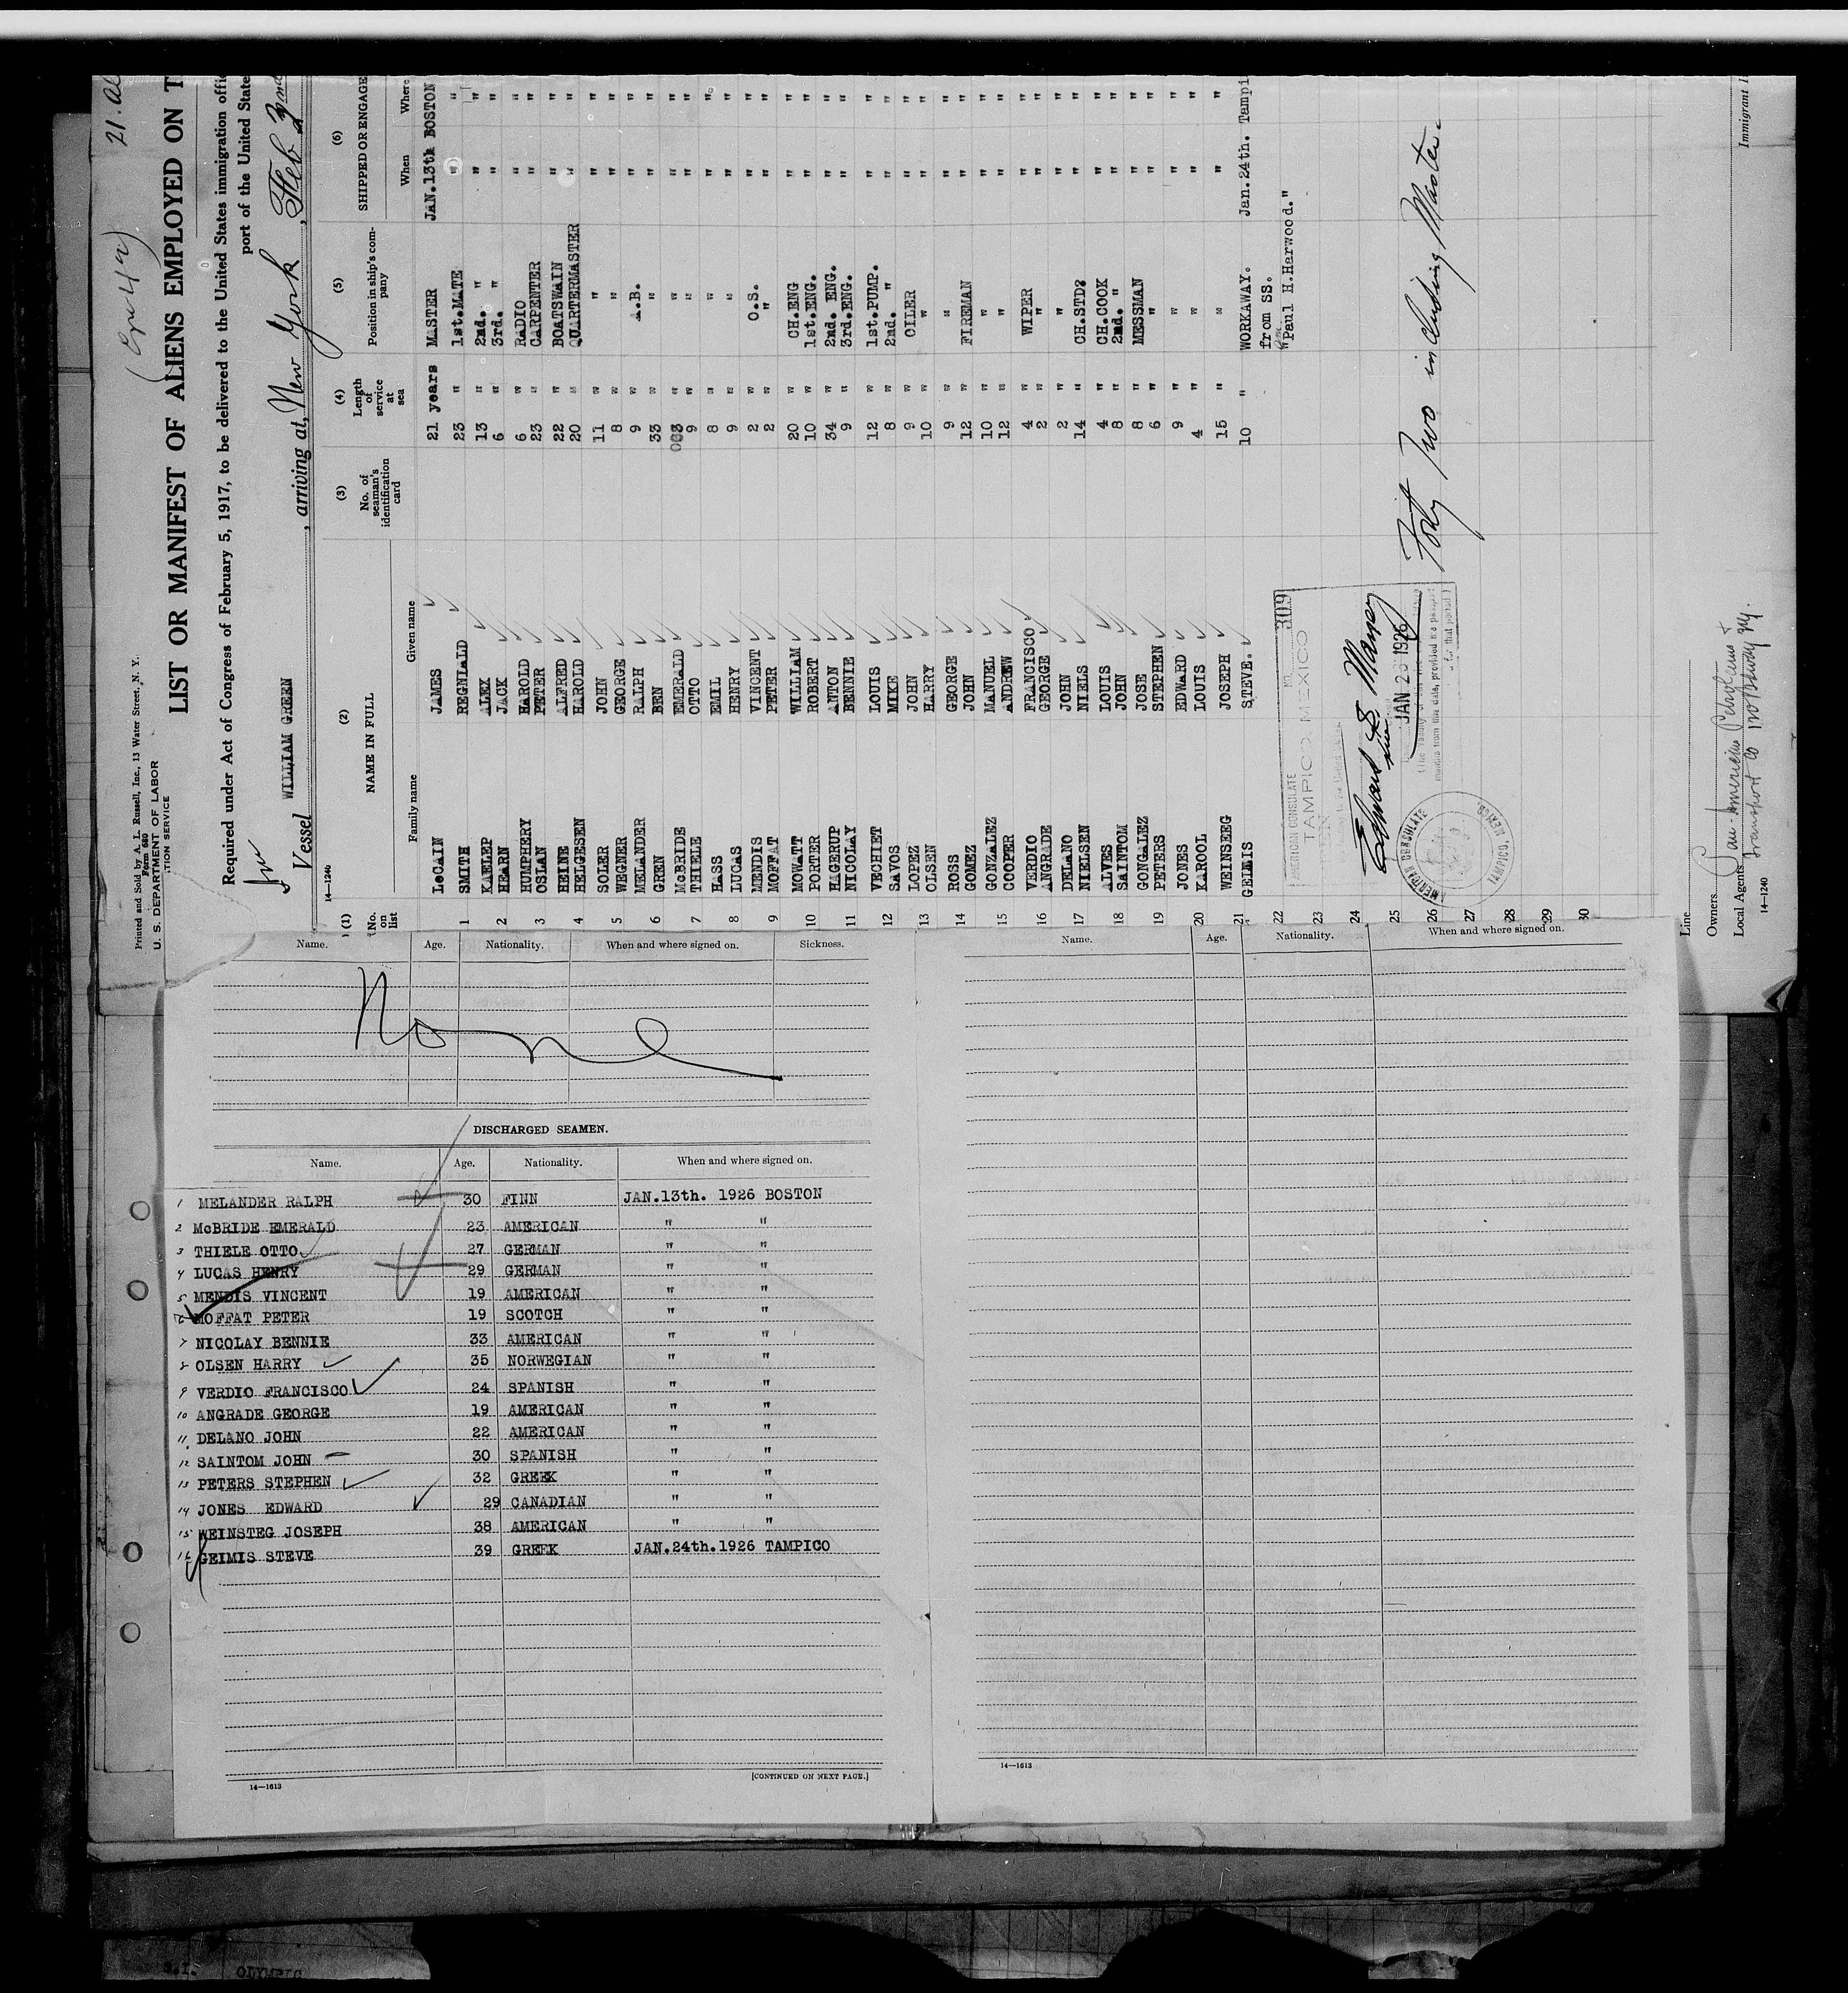 21. Al
(Gre 42)
Printed and Sold by A. L. Russell, Inc., 13 Water Street, N. Y.
Form 680
U. S. DEPARTMENT OF LABOR
TION SERVICE
LIST OR MANIFEST OF ALIENS EMPLOYED ON T
Required under Act of Congress of February 5, 1917, to be delivered to the United States immigration offi
port of the United State
Vessel WILLIAM GREEN , arriving at New York , Feb 3
14—1240
(1) (2) (3) (4) (5) (6)
No. on list NAME IN FULL No. of seaman's identification card Length of service at sea Position in ship's company SHIPPED OR ENGAGE
Family name Given name When Where
LeCAIN JAMES 21 years MASTER JAN.13th BOSTON
1 SMITH REGNIALD 23 " 1st.MATE " "
KAELEP ALEX 13 " 2nd. " " "
2 HEARN JACK 6 " 3rd. " " "
HUMPHERY HAROLD 6 " RADIO " "
3 OSLAN PETER 23 " CARPENTER " "
HEINE ALFRED 22 " BOATSWAIN " "
4 HELGESEN HAROLD 20 " QUARTERMASTER " "
SOLER JOHN 11 " " " "
5 WEGNER GEORGE 8 " " " "
MELANDER RALPH 9 " A.B. " "
6 GREN BEN 33 " " " "
McBRIDE EMERALD 003 " " " "
7 THIELE OTTO 9 " " " "
HASS EMIL 8 " " " "
8 LUCAS HENRY 9 " " " "
MENDIS VINCENT 2 " O.S. " "
9 MOFFAT PETER 2 " " " "
MOWATT WILLIAM 20 " CH.ENG " "
10 PORTER ROBERT 10 " 1st.ENG. " "
HAGERUP ANTON 34 " 2nd. ENG. " "
11 NICOLAY BENNIE 9 " 3rd.ENG. " "
VECHIET LOUIS 12 " 1st.PUMP. " "
12 SAVOS MIKE 8 " 2nd. " " "
LOPEZ JOHN 9 " OILER " "
13 OLSEN HARRY 10 " " " "
ROSS GEORGE 9 " " " "
14 GOMEZ JOHN 12 " FIREMAN " "
GONZALEZ MANUEL 10 " " " "
15 COOPER ANDREW 12 " " " "
VERDIO FRANCISCO 4 " WIPER " "
16 ANGRADE GEORGE 2 " " " "
DELANO JOHN 2 " " " "
17 NIELSEN NIELS 14 " CH.STD? " "
ALVES LOUIS 4 " CH.COOK " "
18 SAINTOM JOHN 8 " 2nd. " " "
GONGALEZ JOSE 8 " MESSMAN " "
19 PETERS STEPHEN 6 " " " "
JONES EDWARD 9 " " " "
20 KAROOL LOUIS 4 " " " "
WEINSEEG JOSEPH 15 " " " "
21 GELLIS STEVE. 10 " WORKAWAY. Jan.24th. Tampi
22 from SS.
"Paul H.Harwood."
23
24
25
26
27
28
29
30
AMERICAN CONSULATE NO. 309
TAMPICO, MEXICO
JAN 23 1926
AMERICAN CONSULATE TAMPICO, MEXICO.
Forty Two including Master.
Line
Owners Pan American Petroleum &
Local Agents Transport Co 120 Bdway NY.
Immigrant I
14—1240
Name. Age. Nationality. When and where signed on. Sickness.
None
DISCHARGED SEAMEN.
Name. Age. Nationality. When and where signed on.
1 MELANDER RALPH 30 FINN JAN.13th. 1926 BOSTON
2 McBRIDE EMERALD 23 AMERICAN " "
3 THIELE OTTO 27 GERMAN " "
4 LUCAS HENRY 29 GERMAN " "
5 MENDIS VINCENT 19 AMERICAN " "
6 MOFFAT PETER 19 SCOTCH " "
7 NICOLAY BENNIE 33 AMERICAN " "
8 OLSEN HARRY 35 NORWEGIAN " "
9 VERDIO FRANCISCO 24 SPANISH " "
10 ANGRADE GEORGE 19 AMERICAN " "
11 DELANO JOHN 22 AMERICAN " "
12 SAINTOM JOHN 30 SPANISH " "
13 PETERS STEPHEN 32 GREEK " "
14 JONES EDWARD 29 CANADIAN " "
15 WEINSTEG JOSEPH 38 AMERICAN " "
16 GEIMIS STEVE 39 GREEK JAN.24th.1926 TAMPICO
14—1613
[CONTINUED ON NEXT PAGE.]
Name. Age. Nationality. When and where signed on.
14—1613
S.I. OLYMPIC